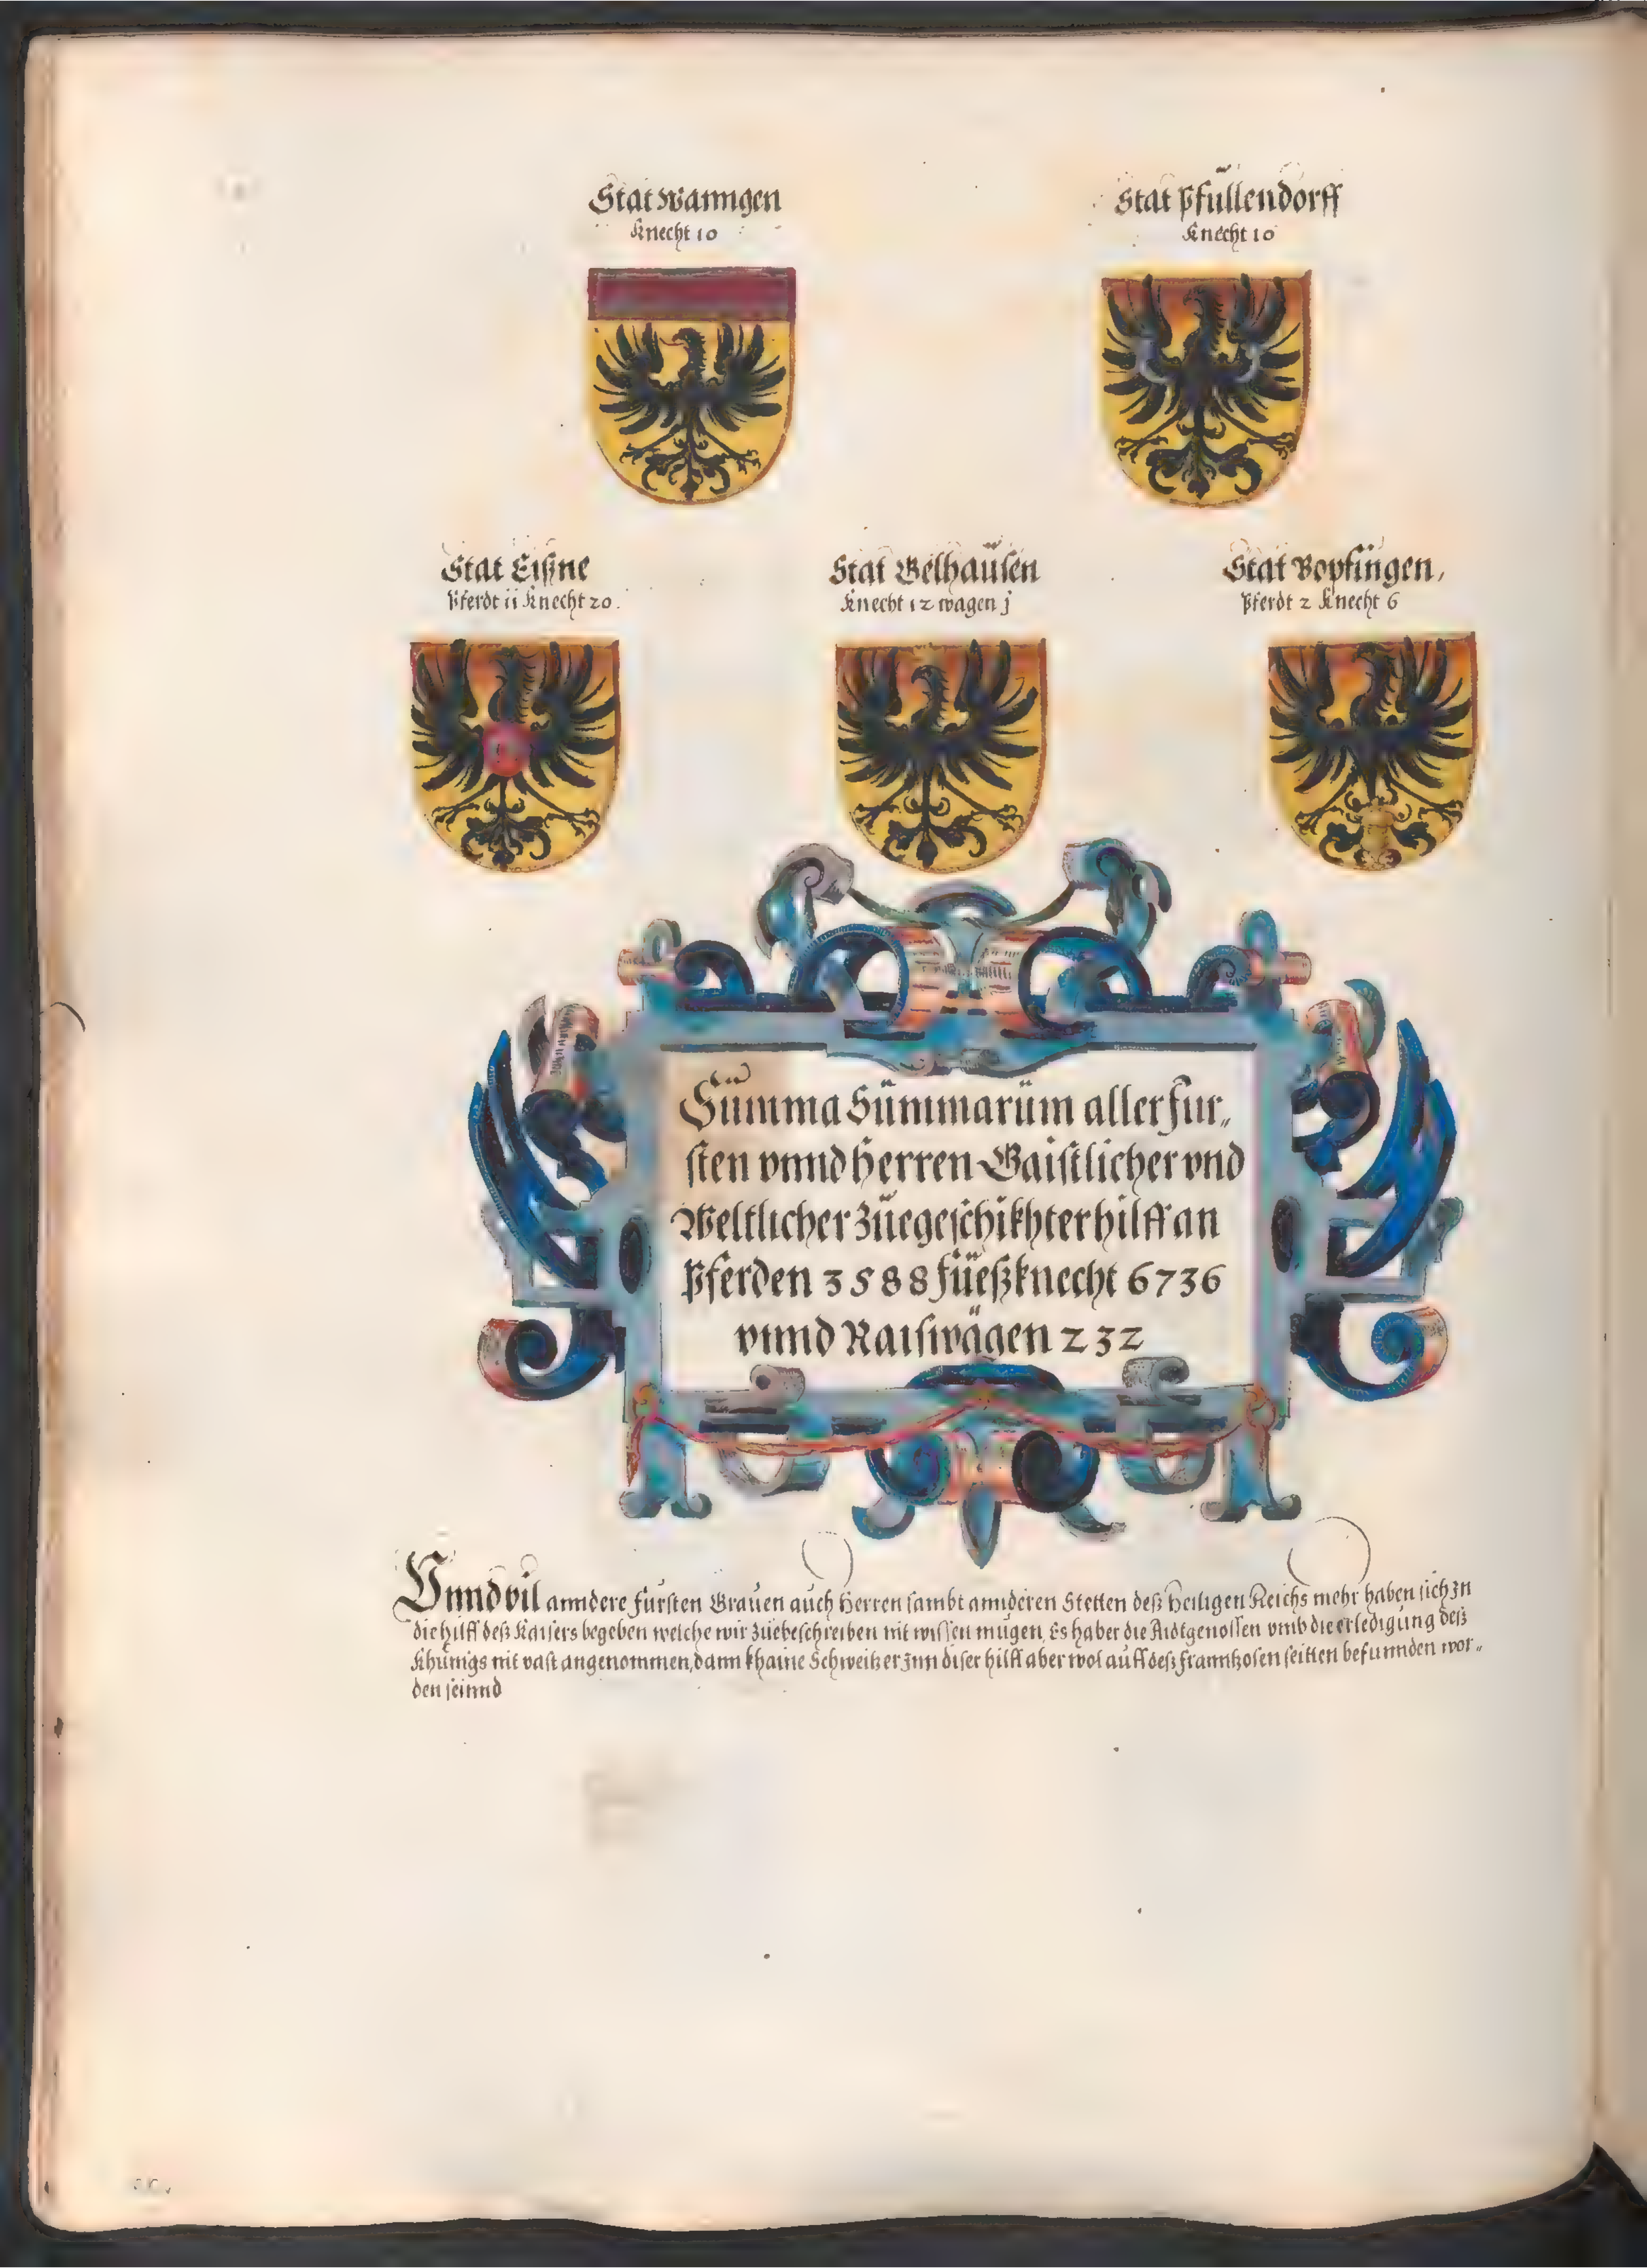 Stat Wanngen
Knecht 10
Stat Pfüllendorff
Knecht 10
Stat Eißne
Pferdt ii Knecht 20.
Stat Gelhaüsen
Knecht 12 wagen j
Stat Bopfingen,
Pferdt 2 Knecht 6
Sümma Sümmarüm aller Fur„
sten vnnd Herren Gaistlicher vnd
Weltlicher züegeschikhter hilff an
Pferden 3588 füeßknecht 6736
vnnd Raiswägen 232
Vnnd vil anndere Fürsten Grauen auch Herren sambt annderen Stetten deß Heiligen Reichs mehr haben sich Zn
die hilff deß Kaisers begeben welche wir züebeschreiben nit wissen mügen, Es haber die Aidtgenossen vmb die erledigung deß
Khünigs nit vast angenommen, dann khaine Schweitzer Jnn diser hilff aber wol aüff deß Franntzosen seitten befunnden wor„
den seinnd